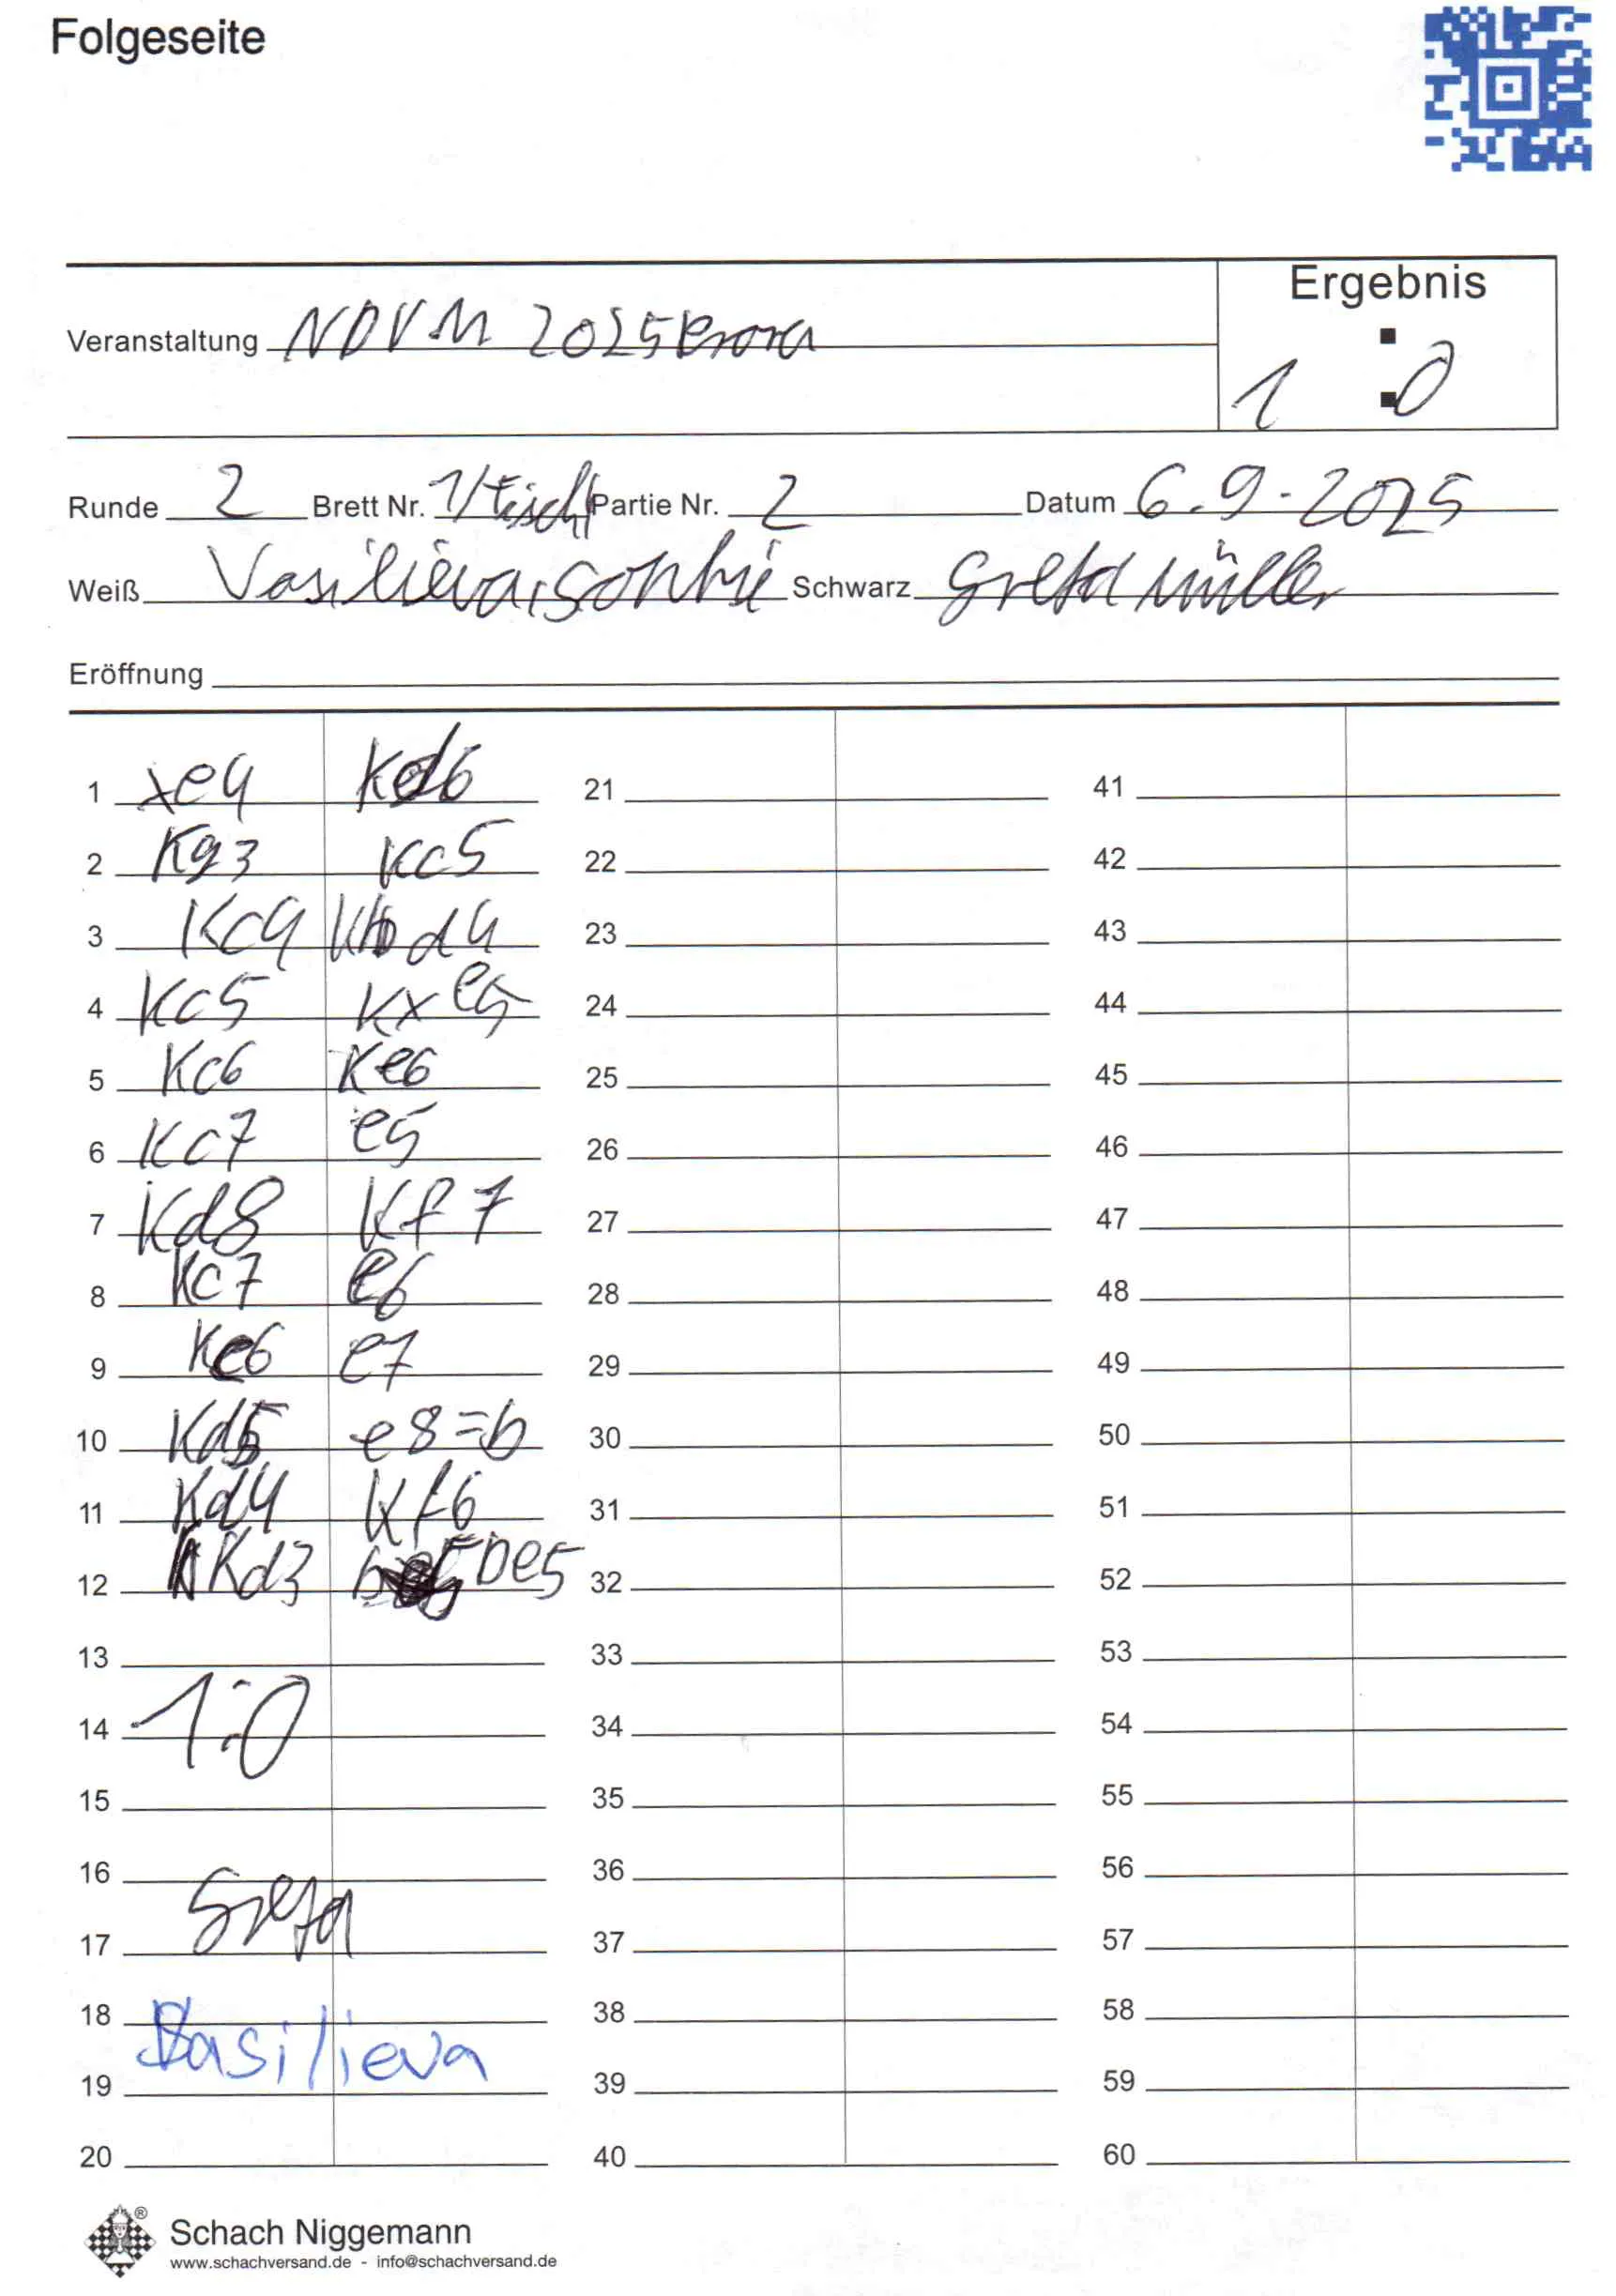 Folgeseite
Ergebnis
Veranstaltung NDVM 2025 Prora
1 : 0
Runde 2 Brett Nr. 1/Tisch Partie Nr. 2 Datum 6.9.2025
Weiß Vasilieva, Sophie Schwarz Greta Müller
Eröffnung
1 xe4 Kd6 21 41
2 Kg3 Kc5 22 42
3 Kc4 Kd4 23 43
4 Kc5 Kxe5 24 44
5 Kc6 Ke6 25 45
6 Kc7 e5 26 46
7 Kd8 Kf7 27 47
8 Kc7 e6 28 48
9 Kc6 e7 29 49
10 Kd5 e8=b 30 50
11 Kd4 Kf6 31 51
12 Kd3 De5 32 52
13 33 53
14 1:0 34 54
15 35 55
16 36 56
Greta
17 37 57
18 38 58
Basilieva
19 39 59
20 40 60
Schach Niggemann
www.schachversand.de - info@schachversand.de